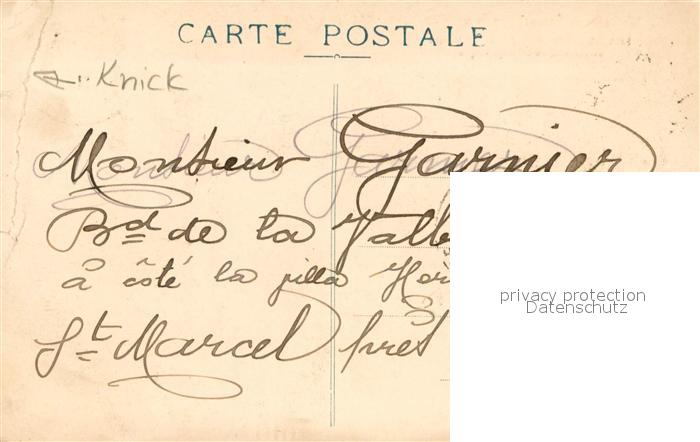 CARTE POSTALE
Knick
Monsieur Garnier
Bd de la Vall
à côté la villa
St Marcel près
privacy protection
Datenschutz